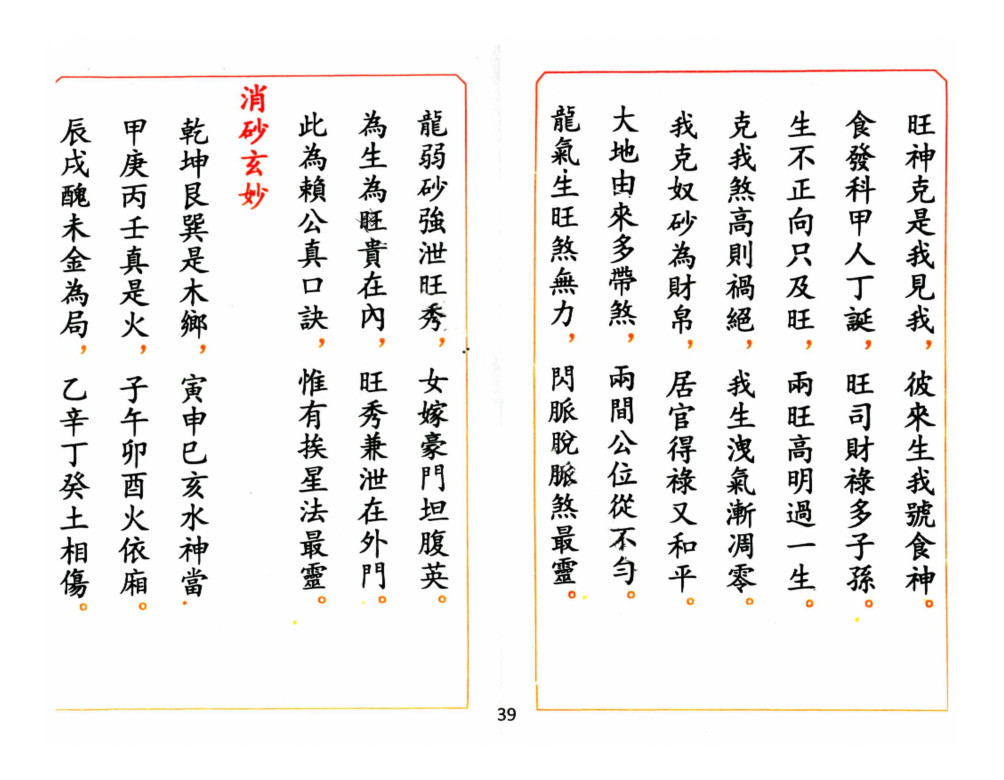 旺神克是我見我，彼來生我號食神。
食發科甲人丁誕，旺司財祿多子孫。
生不正向只及旺，兩旺高明過一生。
克我煞高則禍絕，我生洩氣漸凋零。
我克奴砂為財帛，居官得祿又和平。
大地由來多帶煞，兩間公位從不勻。
龍氣生旺煞無力，閃脈脫脈煞最靈。
龍弱砂強泄旺秀，女嫁豪門坦腹英。
為生為旺貴在內，旺秀兼泄在外門。
此為賴公真口訣，惟有挨星法最靈。
消砂玄妙
乾坤艮巽是木鄉，寅申巳亥水神當.
甲庚丙壬真是火，子午卯酉火依廂。
辰戌醜未金為局，乙辛丁癸土相傷。
39